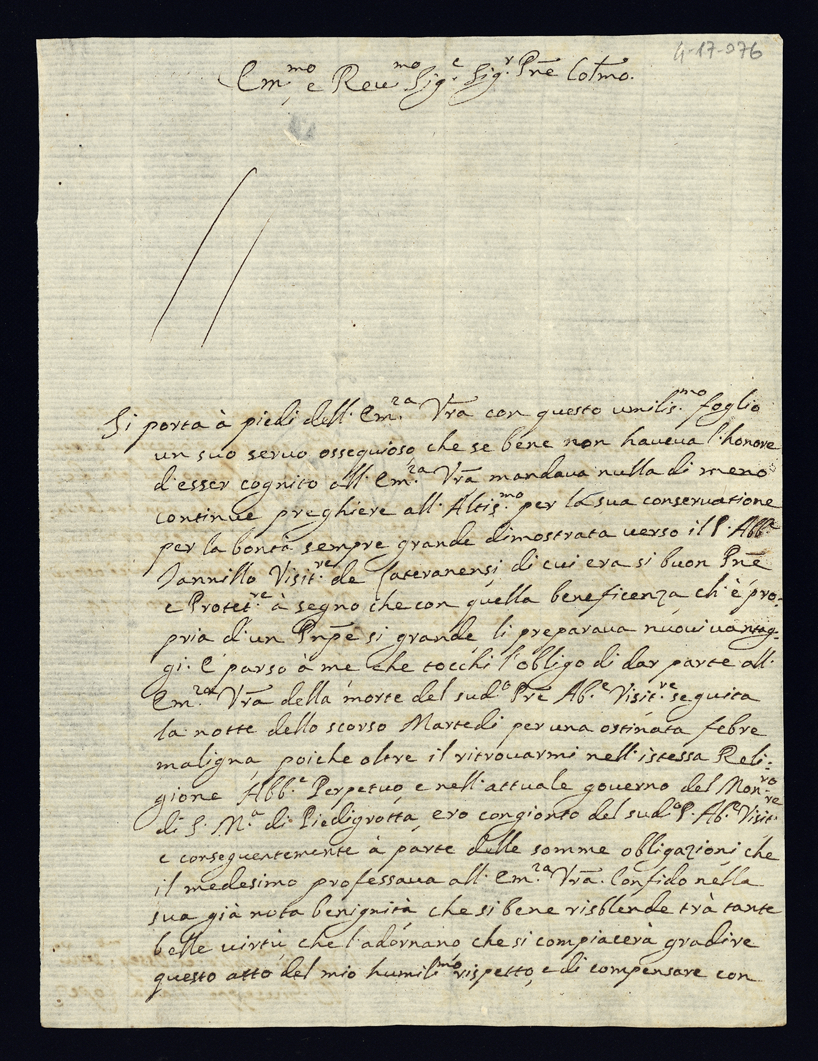 4-17-076
Em.mo e Reu.mo Sig.e Sig.r Pne Colmo.
Si porta à piedi dell' Em.za Vra con questo umilis.mo foglio
un suo seruo ossequioso che se bene non haueua l'honore
d'esser cognito all' Em.za Vra mandaua nulla di meno
continue preghiere all' Altis.mo per la sua conseruatione
per la bontà sempre grande dimostrata uerso il P. Abb.e
Iannillo Visit.re de Lateranensi di cui era si buon Pne
e Protet.re à segno che con quella beneficenza ch'è pro:
pria d'un Pnpe si grande li preparaua nuoui uantag-
gi. È parso à me che tocchi l'obligo di dar parte all'
Em.za Vra della morte del sud.o Pre Ab.e Visit.re seguita
la notte dello scorso Martedi per una ostinata febre
maligna poiche oltre il ritrouarmi nell' istessa Reli:
gione Abb.e Perpetuo e nell' attuale gouerno del Mon:ro
di S. M.a di Piedigrotta, ero congionto del sud.o P. Ab.e Visit.re
e conseguentemente à parte delle somme obligazioni che
il medesimo professaua all' Em.za Vra. Confido nella
sua già nota benignità che si bene risblende trà tante
belle uirtù che l'adornano che si compiacerà gradire
questo atto del mio humili.mo rispetto, e di compensare con